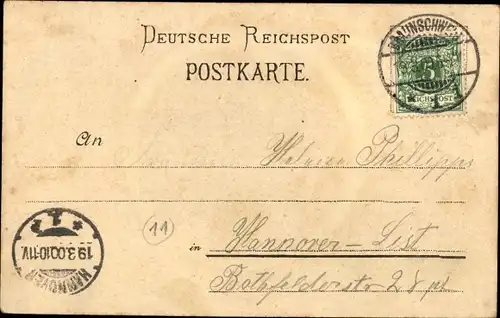 DEUTSCHE REICHSPOST
POSTKARTE.
BRAUNSCHWEIG
5
REICHSPOST
An
Phillipps
in Hannover-List
Bothfelderstr 28 pt
11
HANNOVER
19.3.00.10-11V.